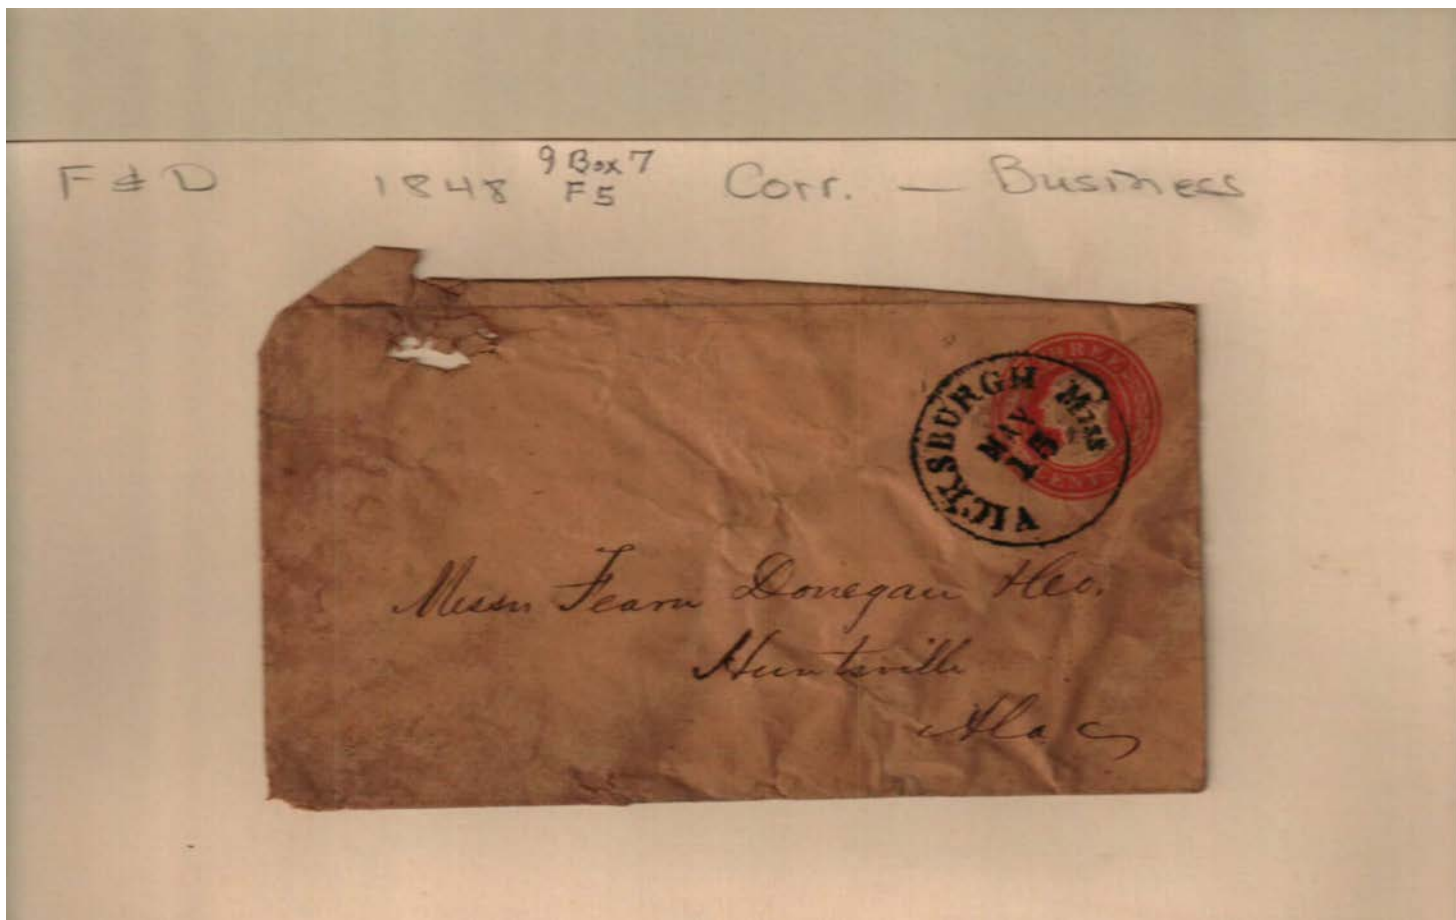 F & D 1848 9 Box 7 F5 Corr. — Business
THREE CENTS
VICKSBURGH Miss
MAY
15
Messrs Fearn Donegan & Co.
Huntsville
Ala